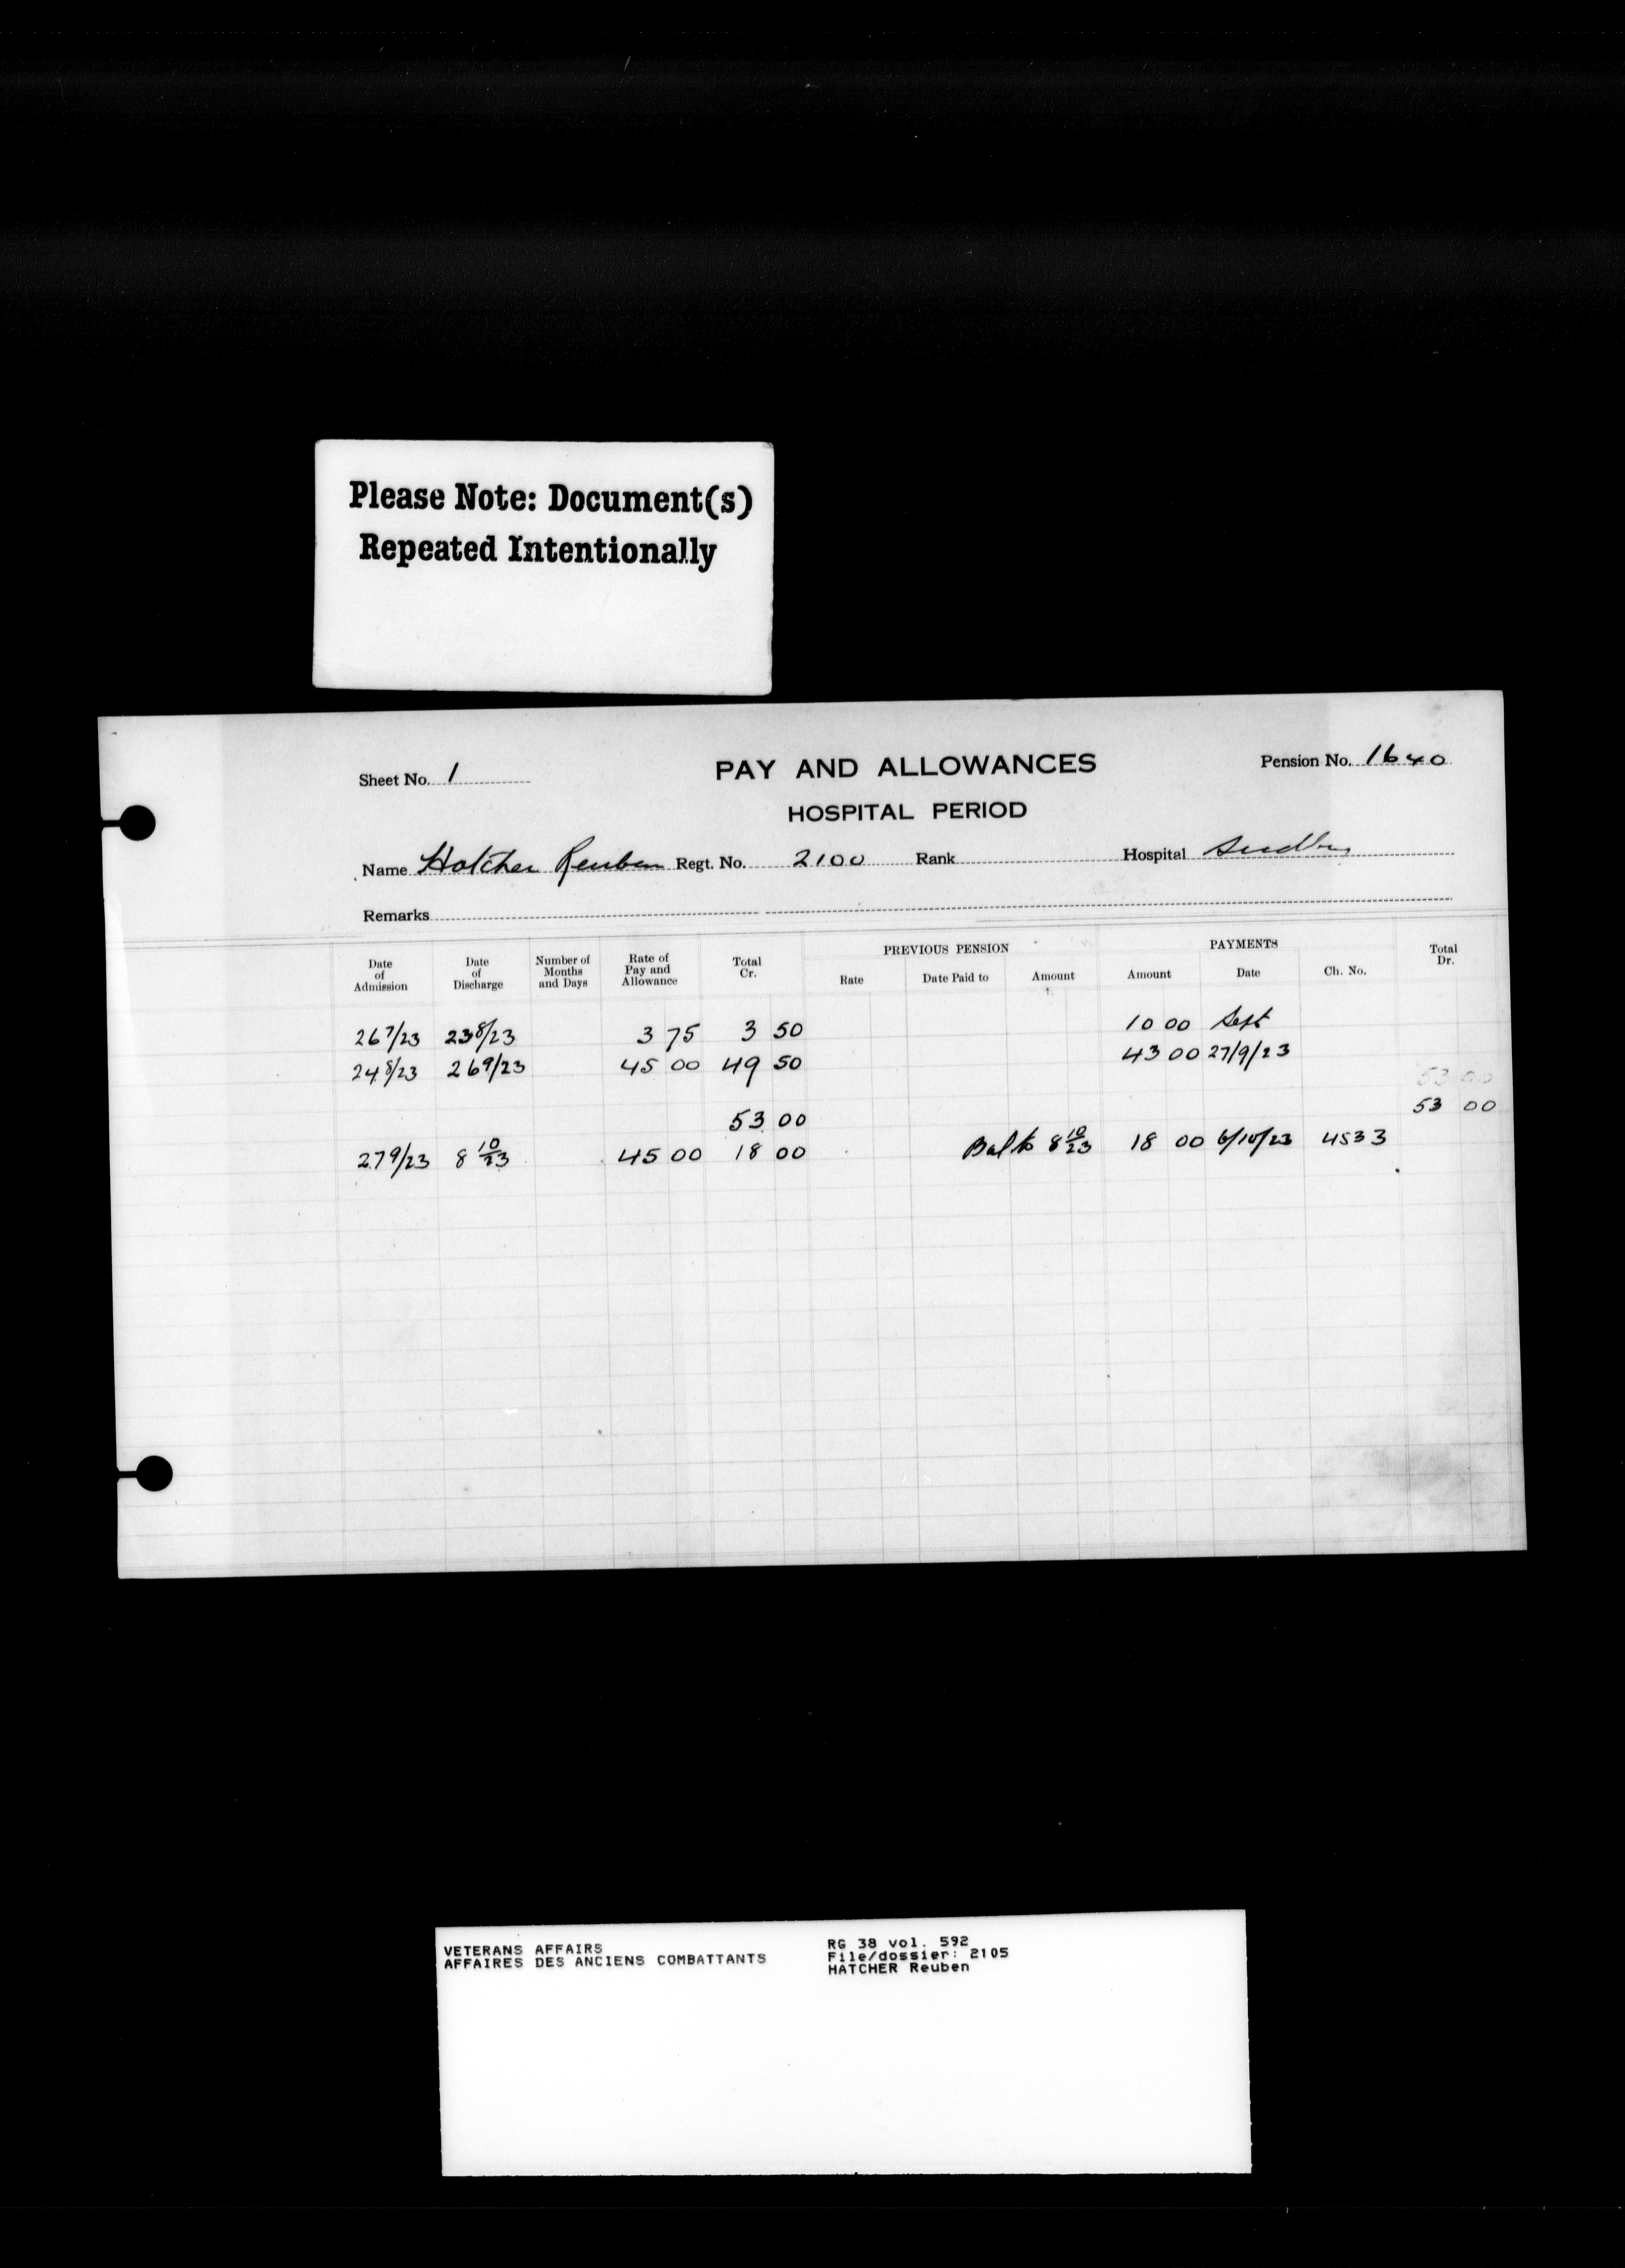 Please Note: Document(s)
Repeated Intentionally
Sheet No. 1 PAY AND ALLOWANCES Pension No. 1640
HOSPITAL PERIOD
Name Hatcher Reuben Regt. No. 2100 Rank Hospital Sudbury
Remarks
PREVIOUS PENSION PAYMENTS
Date of Admission Date of Discharge Number of Months and Days Rate of Pay and Allowance Total Cr. Rate Date Paid to Amount Amount Date Ch. No. Total Dr.
26 7/23 23 8/23 3 75 3 50 10 00 Sept
24 8/23 26 9/23 45 00 49 50 43 00 27/9/23
53 00
53 00 53 00
27 9/23 8 10/23 45 00 18 00 Bal to 8 10/23 18 00 6/10/23 4533
VETERANS AFFAIRS
AFFAIRES DES ANCIENS COMBATTANTS
RG 38 vol. 592
File/dossier: 2105
HATCHER Reuben